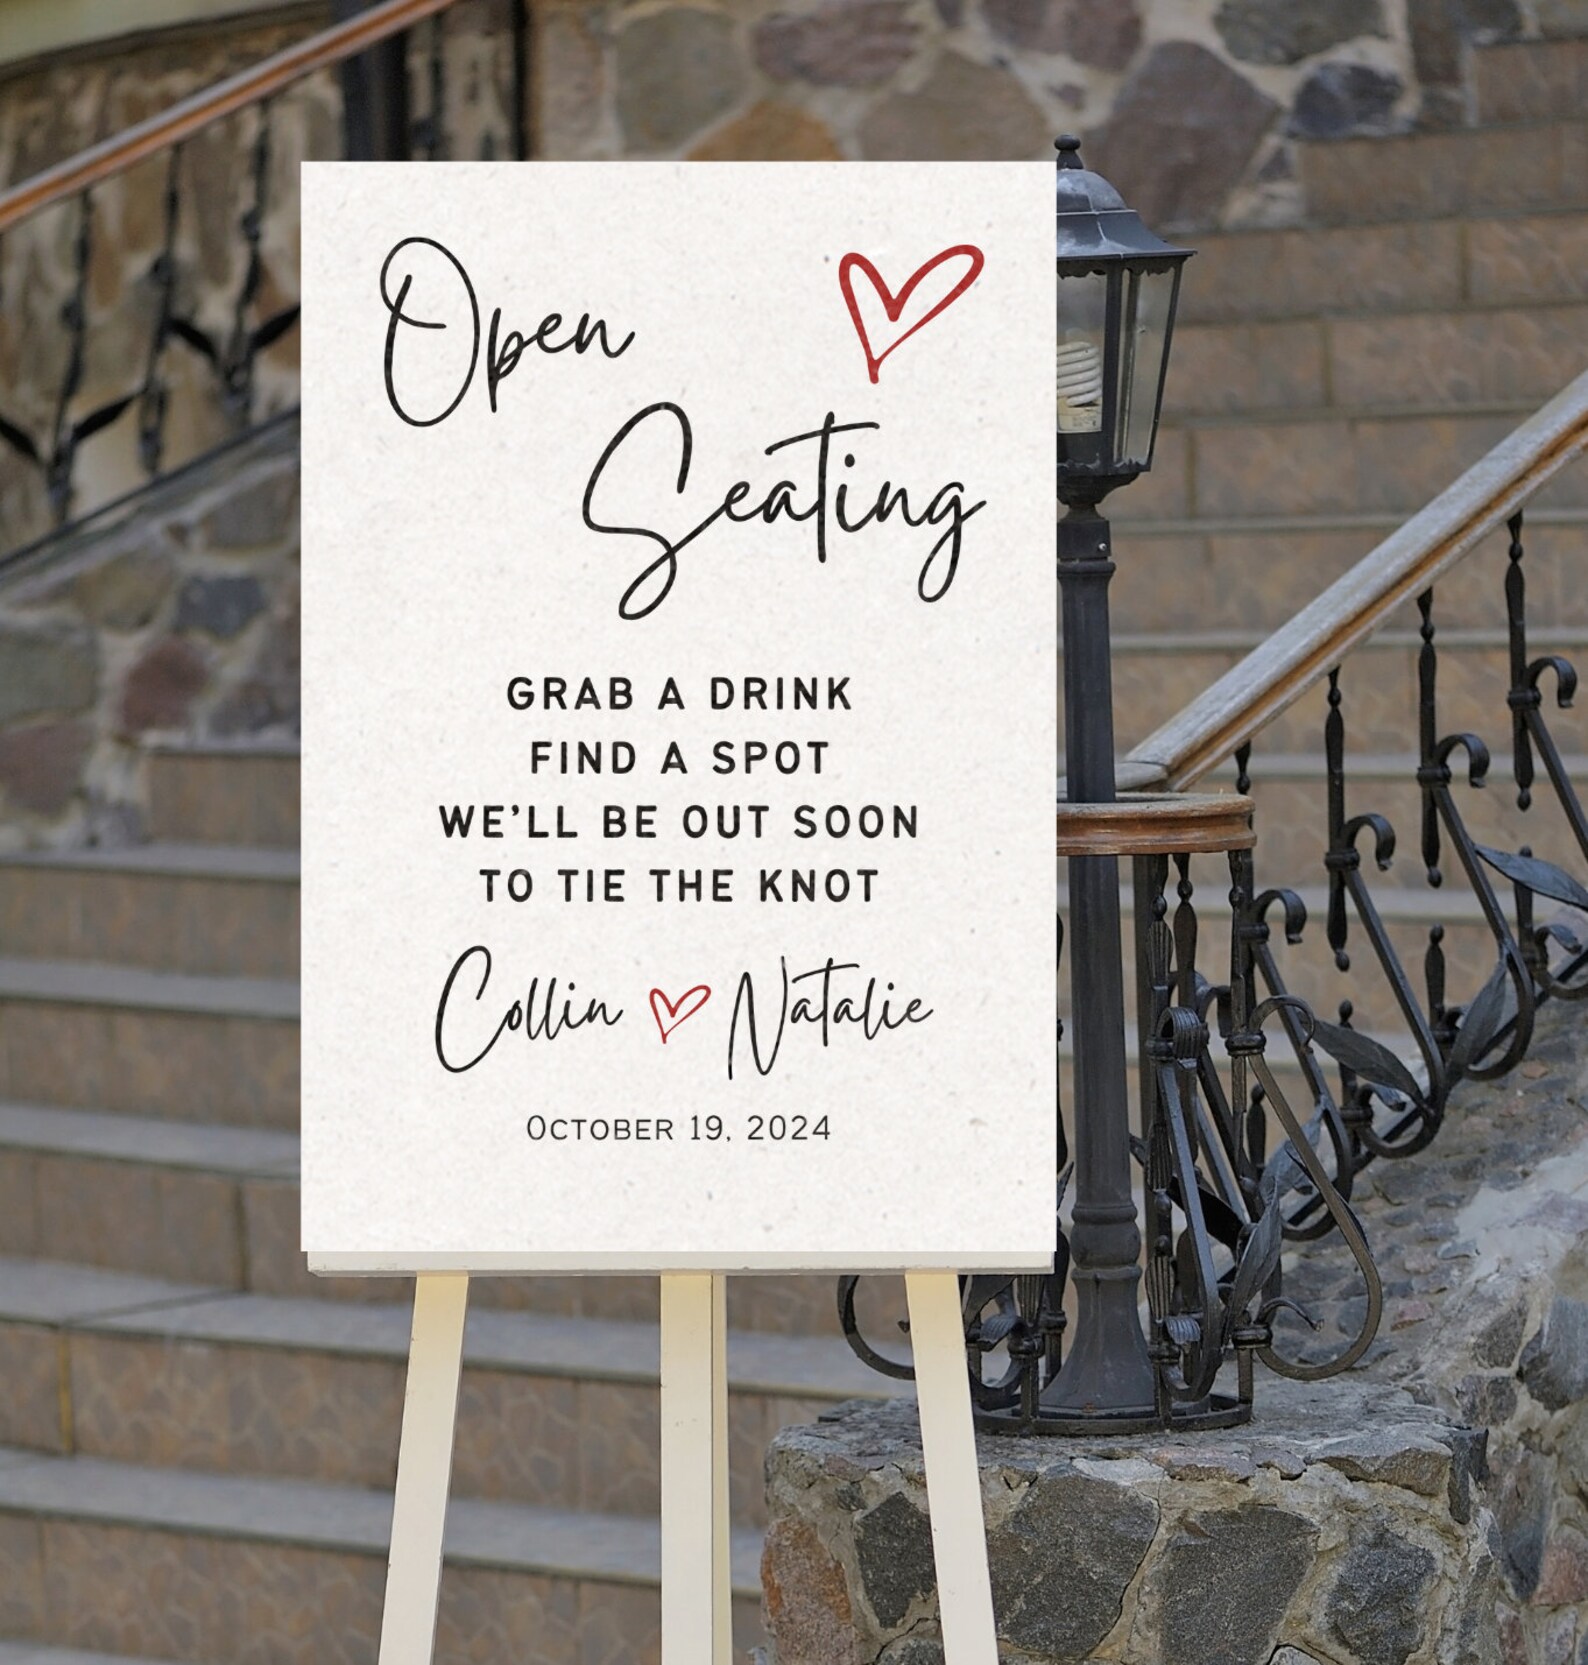 Open
Seating
GRAB A DRINK
FIND A SPOT
WE'LL BE OUT SOON
TO TIE THE KNOT
Collin Natalie
October 19, 2024